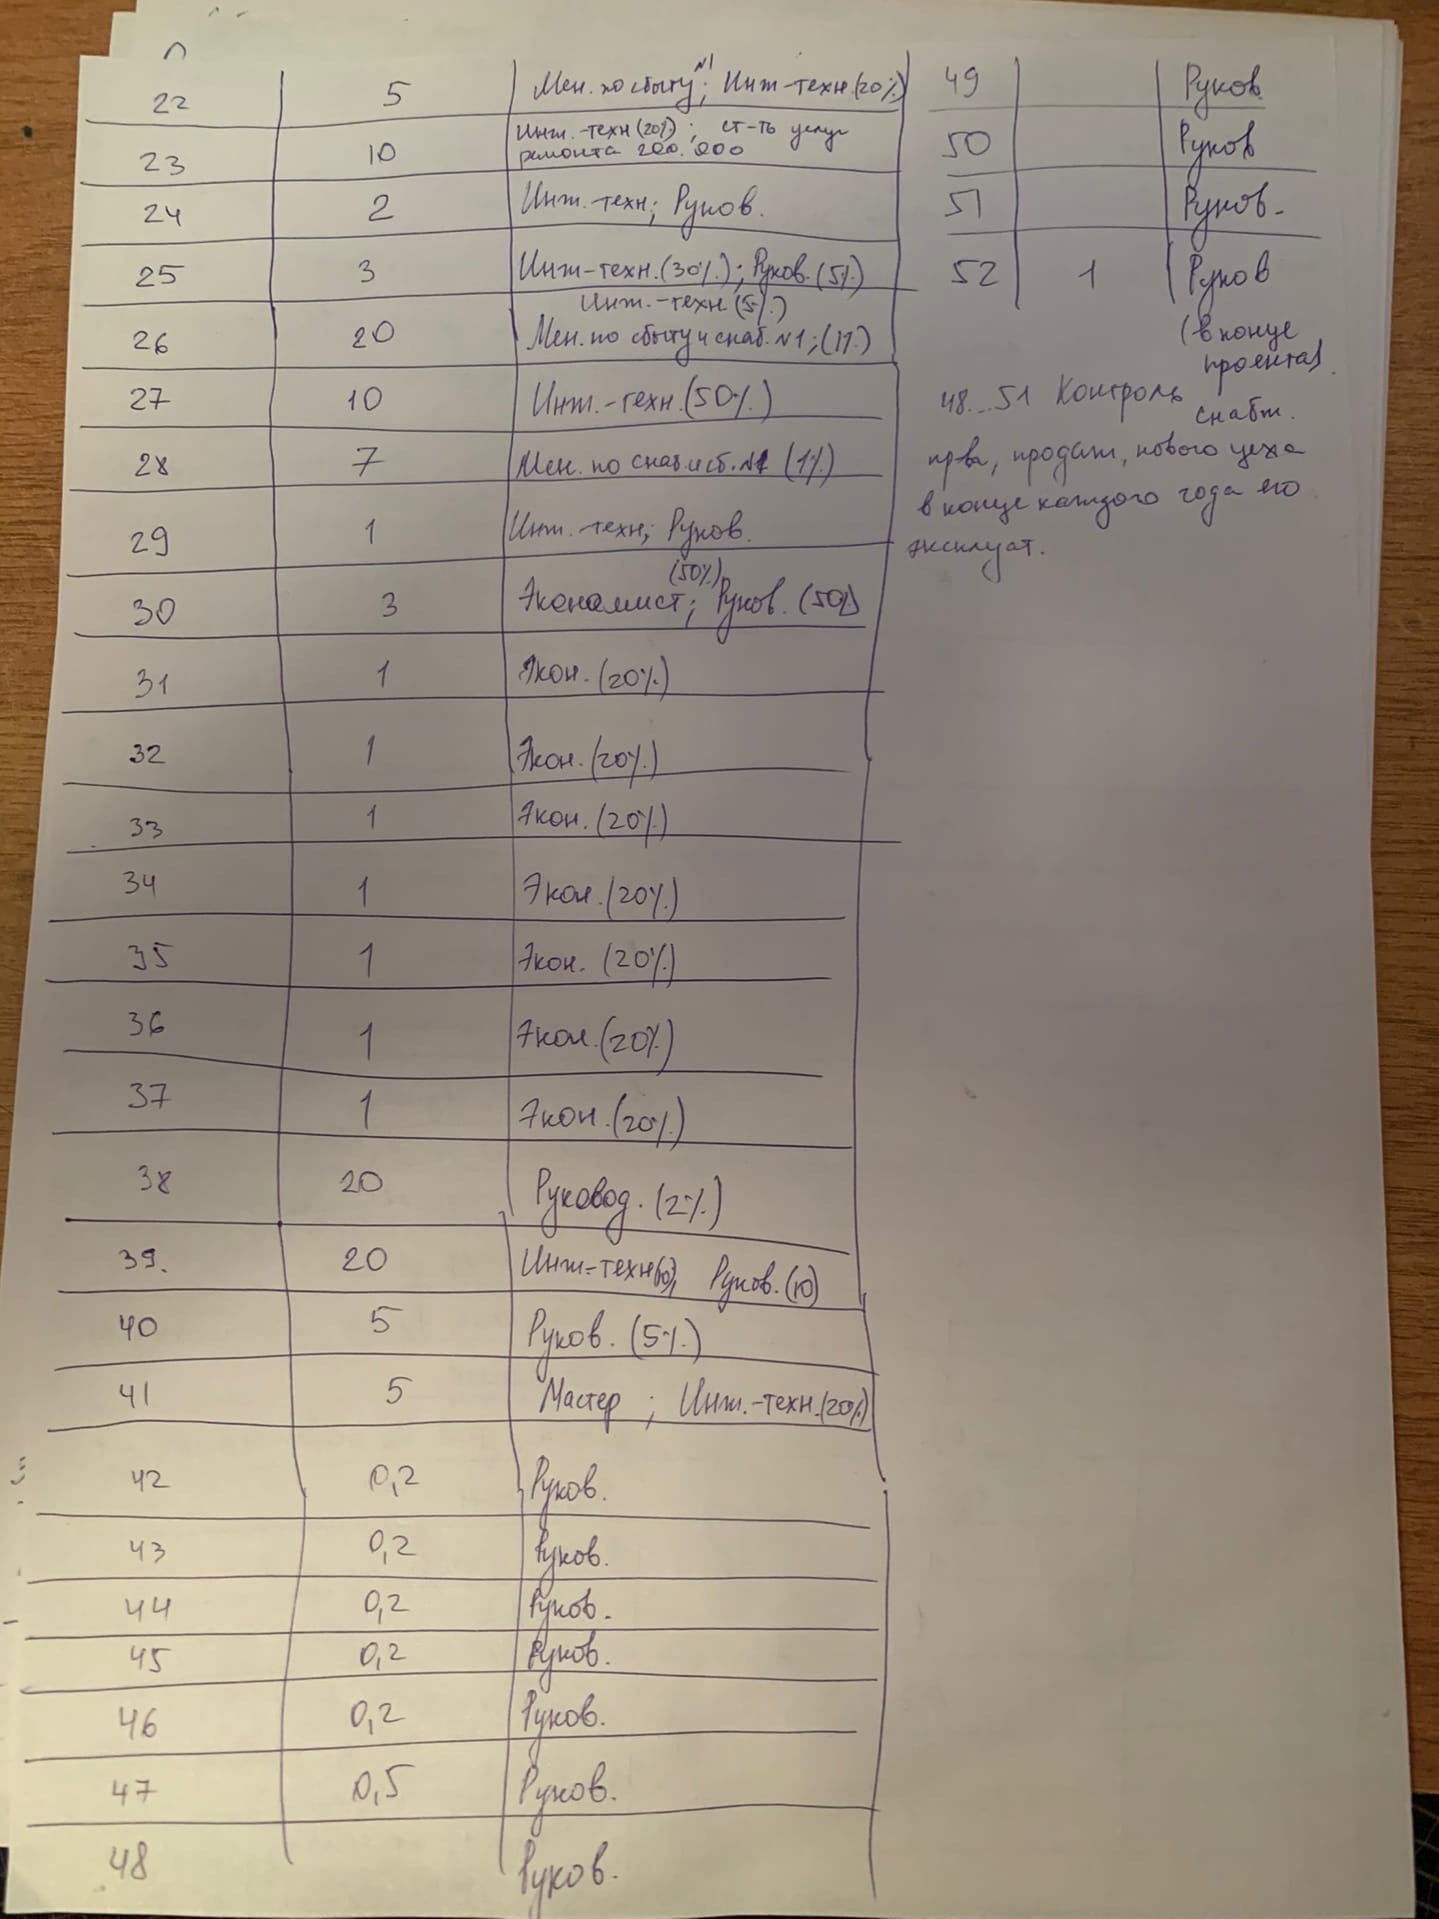 22 5 Мен. по сбыту №1; Инж-техн.(20%)
23 10 Инж.-техн(20%); ст-ть услуг
ремонта 200.000
24 2 Инж.-техн; Руков.
25 3 Инж-техн.(30%); Руков.(5%)
Инж.-техн(5%)
26 20 Мен.по сбыту и снаб.№1;(1%)
27 10 Инж.-техн.(50%)
28 7 Мен. по снаб.и сб.№1 (1%)
29 1 Инж.-техн; Руков.
(50%)
30 3 Экономист; Руков. (50%)
31 1 Экон. (20%)
32 1 Экон. (20%)
33 1 Экон. (20%)
34 1 Экон. (20%)
35 1 Экон. (20%)
36 1 Экон. (20%)
37 1 Экон. (20%)
38 20 Руковод. (2%)
39. 20 Инж-техн Руков. (10)
40 5 Руков. (5%)
41 5 Мастер ; Инж.-техн.(20%)
42 0,2 Руков.
43 0,2 Руков.
44 0,2 Руков.
45 0,2 Руков.
46 0,2 Руков.
47 0,5 Руков.
48 Руков.
49 Руков.
50 Руков
51 Руков.
52 1 Руков
(в конце
проекта).
48...51 Контроль снабж.
пр-ва, продаж, нового цеха
в конце каждого года его
эксплуат.